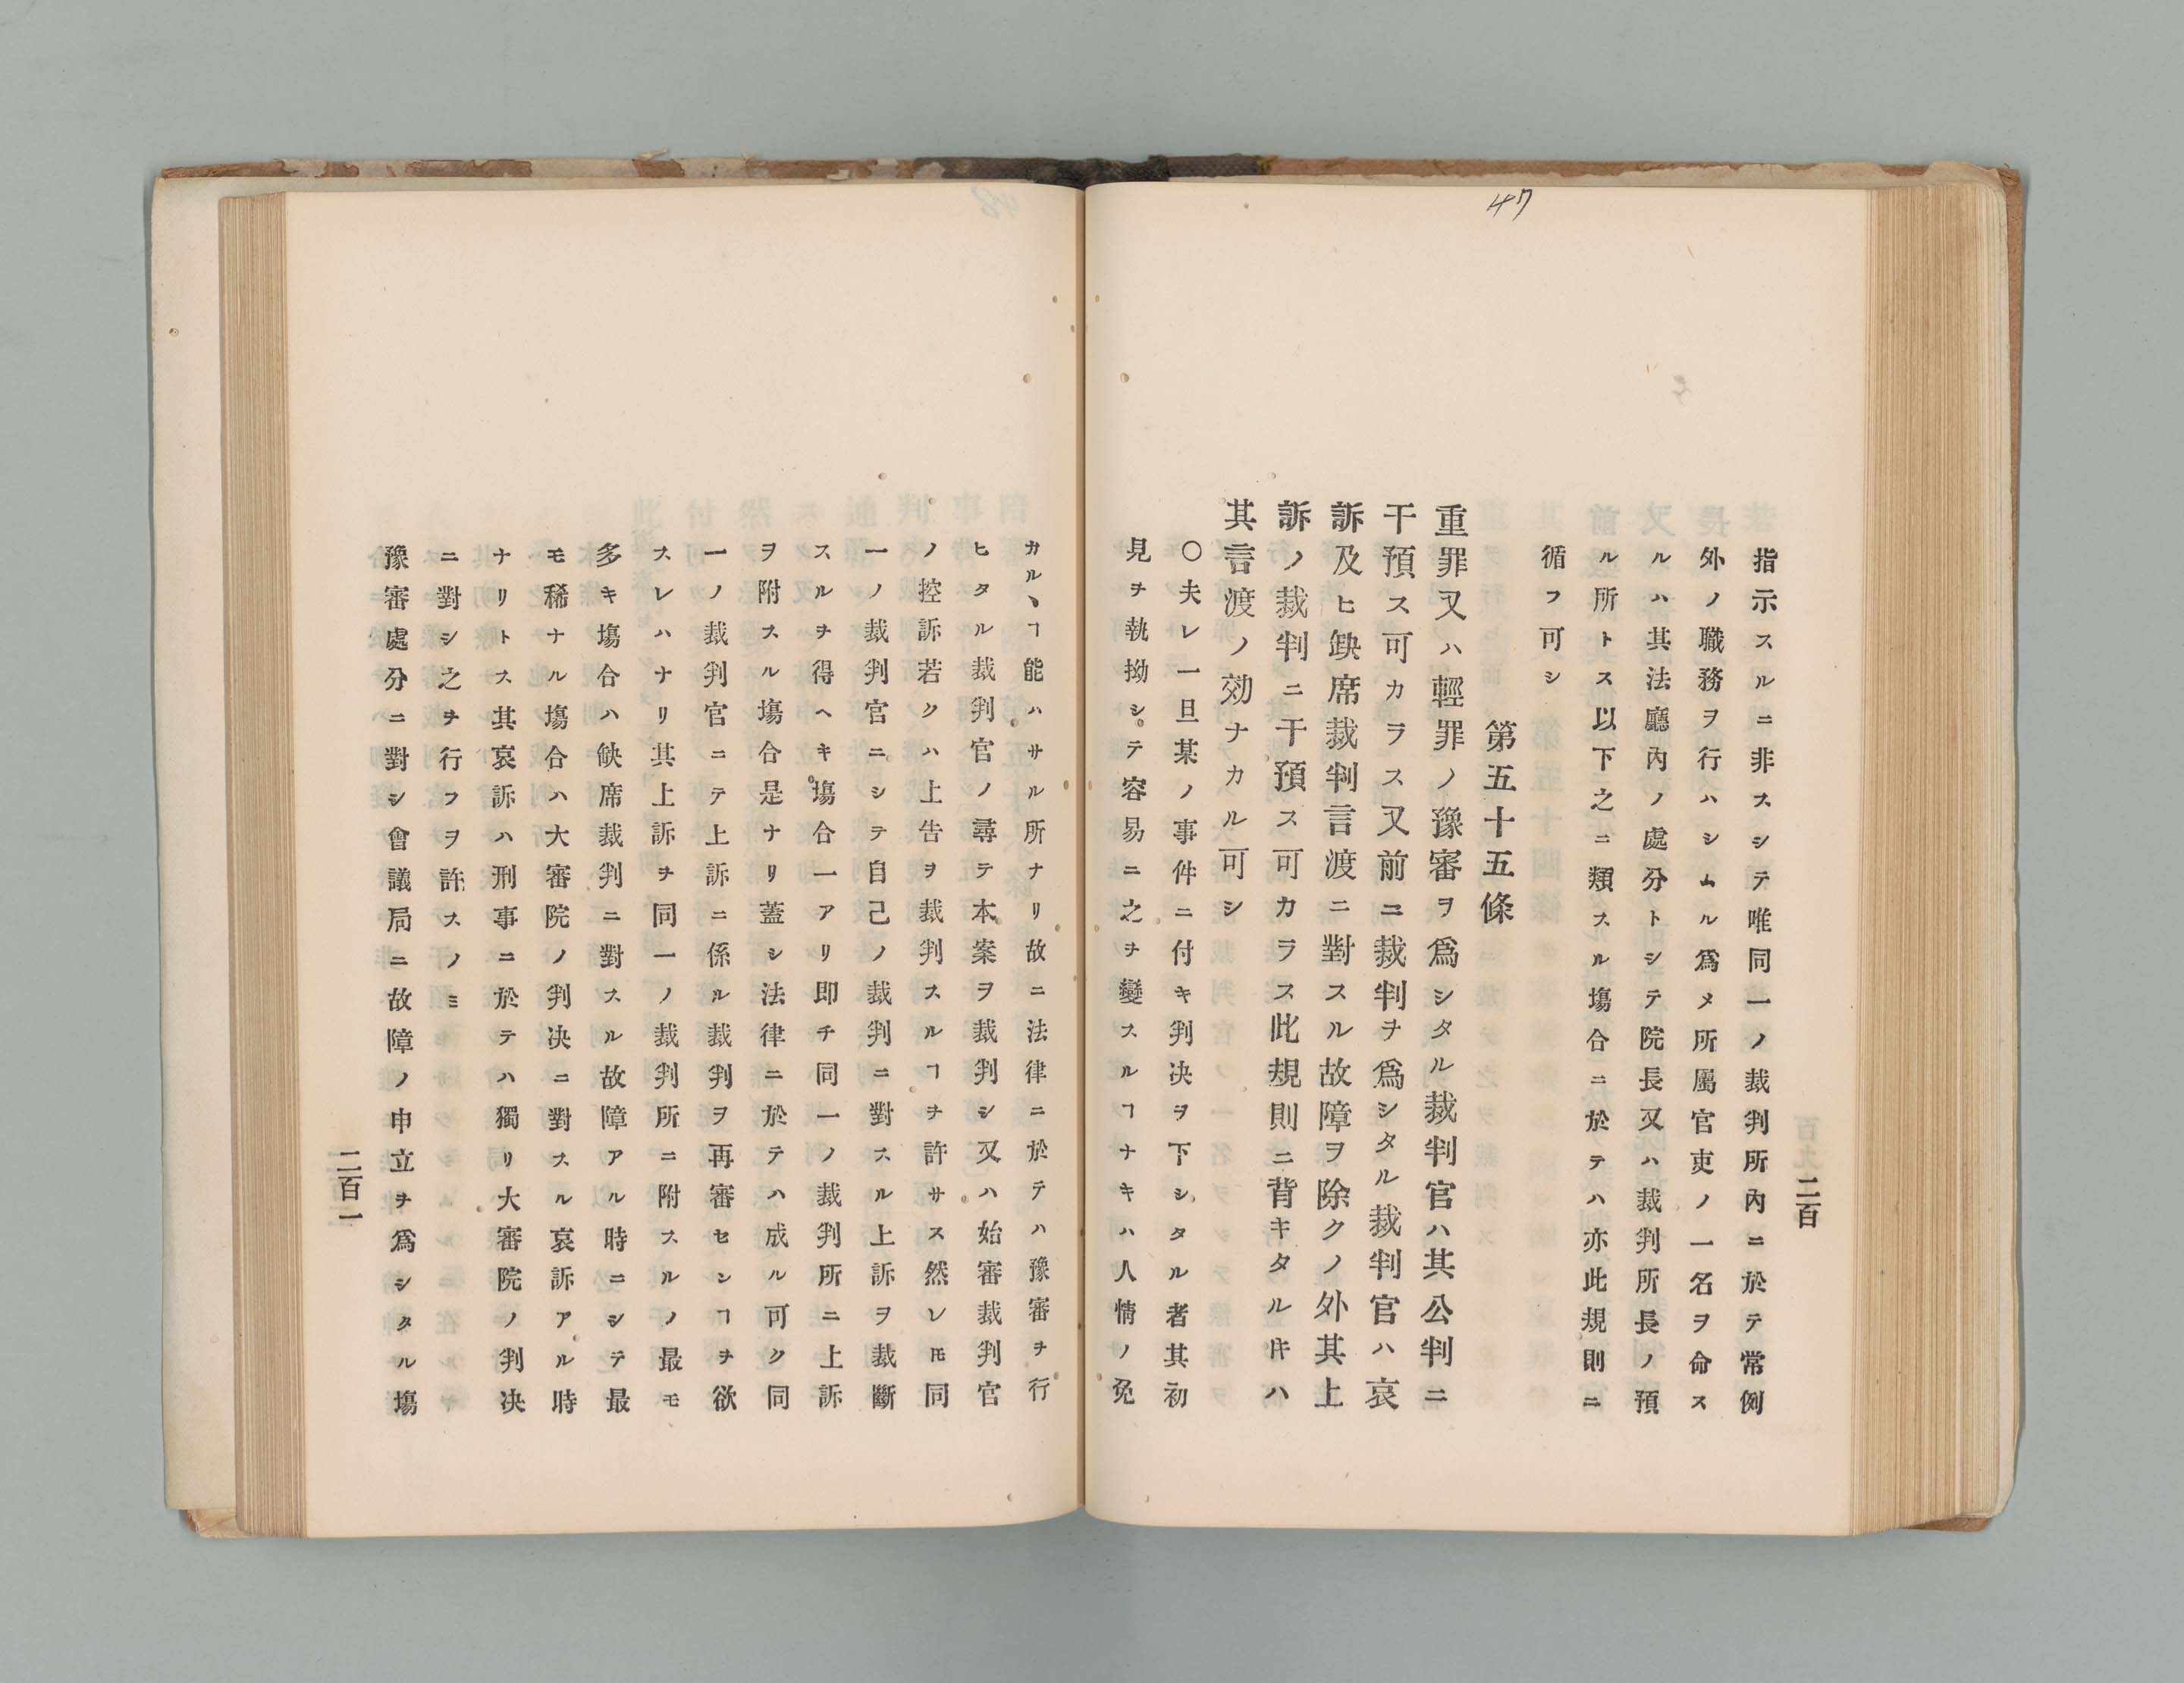 47
二百
指示スルニ非スシテ唯同一ノ裁判所內ニ於テ常例
外ノ職務ヲ行ハシムル爲メ所屬官吏ノ一名ヲ命ス
ルハ其法廳內ノ處分トシテ院長又ハ裁判所長ノ預
ル所トス以下之ニ類スル塲合ニ於テハ亦此規則ニ
循フ可シ
第五十五條
重罪又ハ輕罪ノ豫審ヲ爲シタル裁判官ハ其公判ニ
干預ス可カラス又前ニ裁判ヲ爲シタル裁判官ハ哀
訴及ヒ缺席裁判言渡ニ對スル故障ヲ除クノ外其上
訴ノ裁判ニ干預ス可カラス此規則ニ背キタル𪜈ハ
其言渡ノ効ナカル可シ
〇夫レ一旦某ノ事件ニ付キ判決ヲ下シタル者其初
見ヲ執拗シテ容易ニ之ヲ變スルヿナキハ人情ノ免
カルヽヿ能ハサル所ナリ故ニ法律ニ於テハ豫審ヲ行
ヒタル裁判官ノ尋テ本案ヲ裁判シ又ハ始審裁判官
ノ控訴若クハ上告ヲ裁判スルヿヲ許サス然レ𪜈同
一ノ裁判官ニシテ自己ノ裁判ニ對スル上訴ヲ裁斷
スルヲ得ヘキ塲合一アリ即チ同一ノ裁判所ニ上訴
ヲ附スル塲合是ナリ蓋シ法律ニ於テハ成ル可ク同
一ノ裁判官ニテ上訴ニ係ル裁判ヲ再審センヿヲ欲
スレハナリ其上訴ヲ同一ノ裁判所ニ附スルノ最モ
多キ塲合ハ缺席裁判ニ對スル故障アル時ニシテ最
モ稀ナル塲合ハ大審院ノ判決ニ對スル哀訴アル時
ナリトス其哀訴ハ刑事ニ於テハ獨リ大審院ノ判決
ニ對シ之ヲ行フヲ許スノミ
豫審處分ニ對シ會議局ニ故障ノ申立ヲ爲シタル塲
二百一